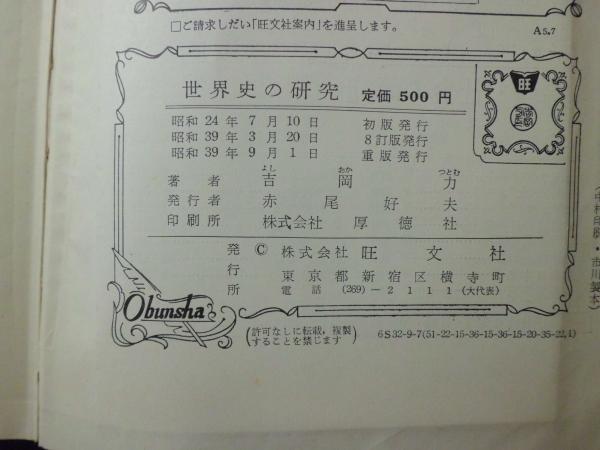 □ご請求しだい「旺文社案内」を進呈します。
A5.7
世界史の研究 定価 500 円
旺
昭和 24 年 7 月 10 日 初版発行
昭和 39 年 3 月 20 日 8訂版発行
昭和 39 年 9 月 1 日 重版発行
よし おか つとむ
著者 吉岡力
発行者 赤尾好夫
印刷所 株式会社 厚徳社
発行所 © 株式会社 旺文社
東京都新宿区横寺町
電話 (269)-2111(大代表)
Obunsha
(許可なしに転載,複製することを禁じます)
6S32-9-7(51-22-15-36-15-36-15-20-35-22,1)
(中村印刷・市川製本)